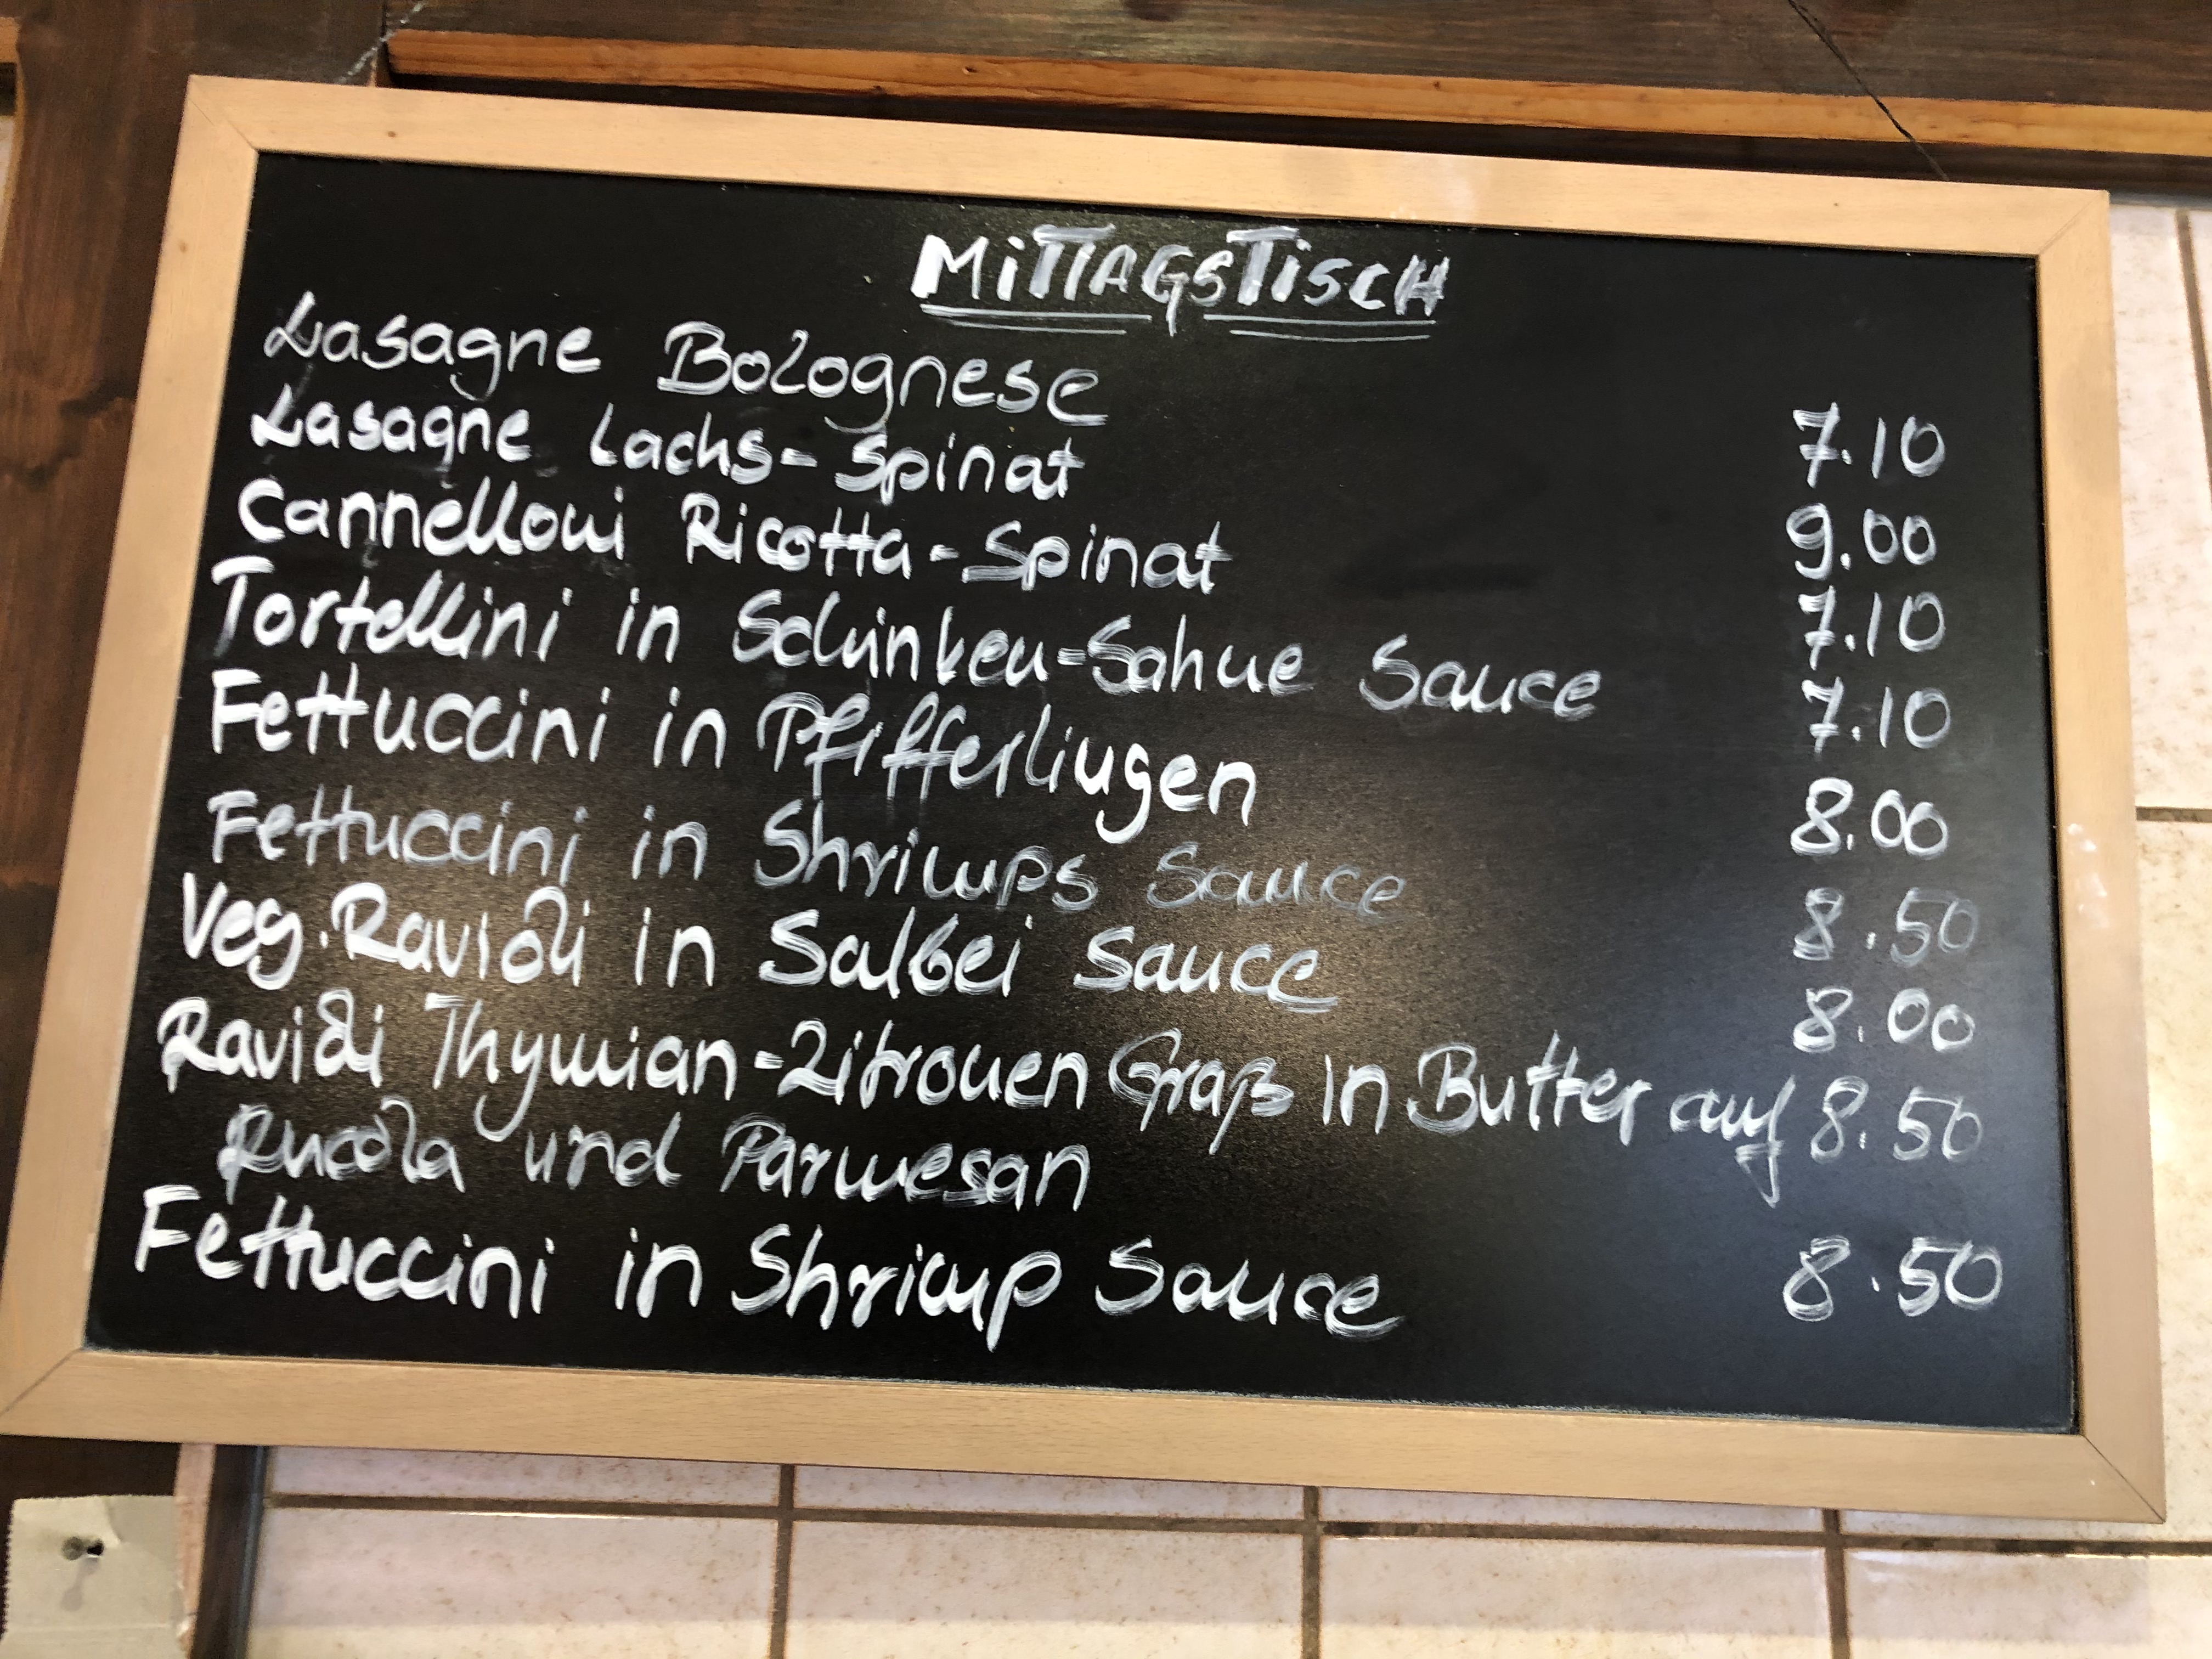 MiTTAGSTiSCH
Lasagne Bolognese 7.10
Lasagne Lachs-Spinat 9.00
Cannelloni Ricotta-Spinat 7.10
Tortellini in Schinken-Sahne Sauce 7.10
Fettuccini in Pfifferlingen 8.00
Fettuccini in Shrimps Sauce 8.50
Veg. Ravioli in Salbei Sauce 8.00
Ravioli Thymian-Zitronen Graß in Butter auf 8.50
Rucola und Parmesan
Fettuccini in Shrimp Sauce 8.50